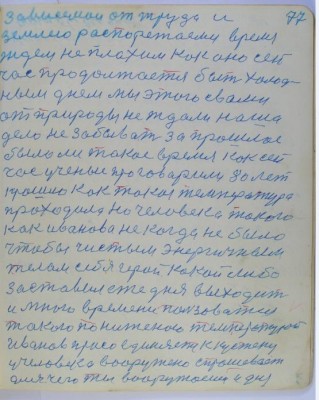 зависемой от труда и 77
землею распорежаеми время
ждем не плахим как оно сей
час продолжается быть холод
ным днем мы этого с вами
от природы не ждали наша
дело не забыват за прошлое
было ли такое время как сей
час ученые проговорили 30 лет
прошло как такая температура
проходила но человека такого
как иванова не когда не было
чтобы чистым энергичным
телам себя герой какой либо
заставил сте дня выходит
и много времени ползоватся
такою пониженою температурой
иванов присоединяет к
у человека вооружено спрашивает
для чего ты вооружоный дну